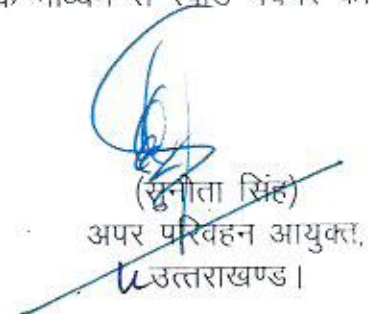 के माध्यम से
(सुनीता सिंह)
अपर परिवहन आयुक्त,
उत्तराखण्ड।